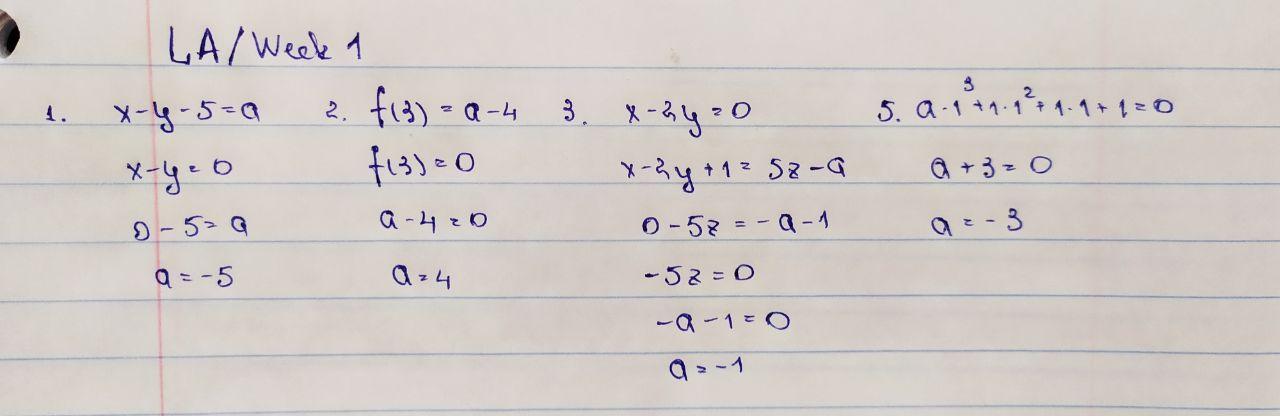 LA/Week 1
1. x-y-5=a
x-y=0
0-5=a
a=-5
2. f(3)=a-4
f(3)=0
a-4=0
a=4
3. x-2y=0
x-2y+1=5z-a
0-5z=-a-1
-5z=0
-a-1=0
a=-1
5. a·1³+1·1²+1·1+1=0
a+3=0
a=-3